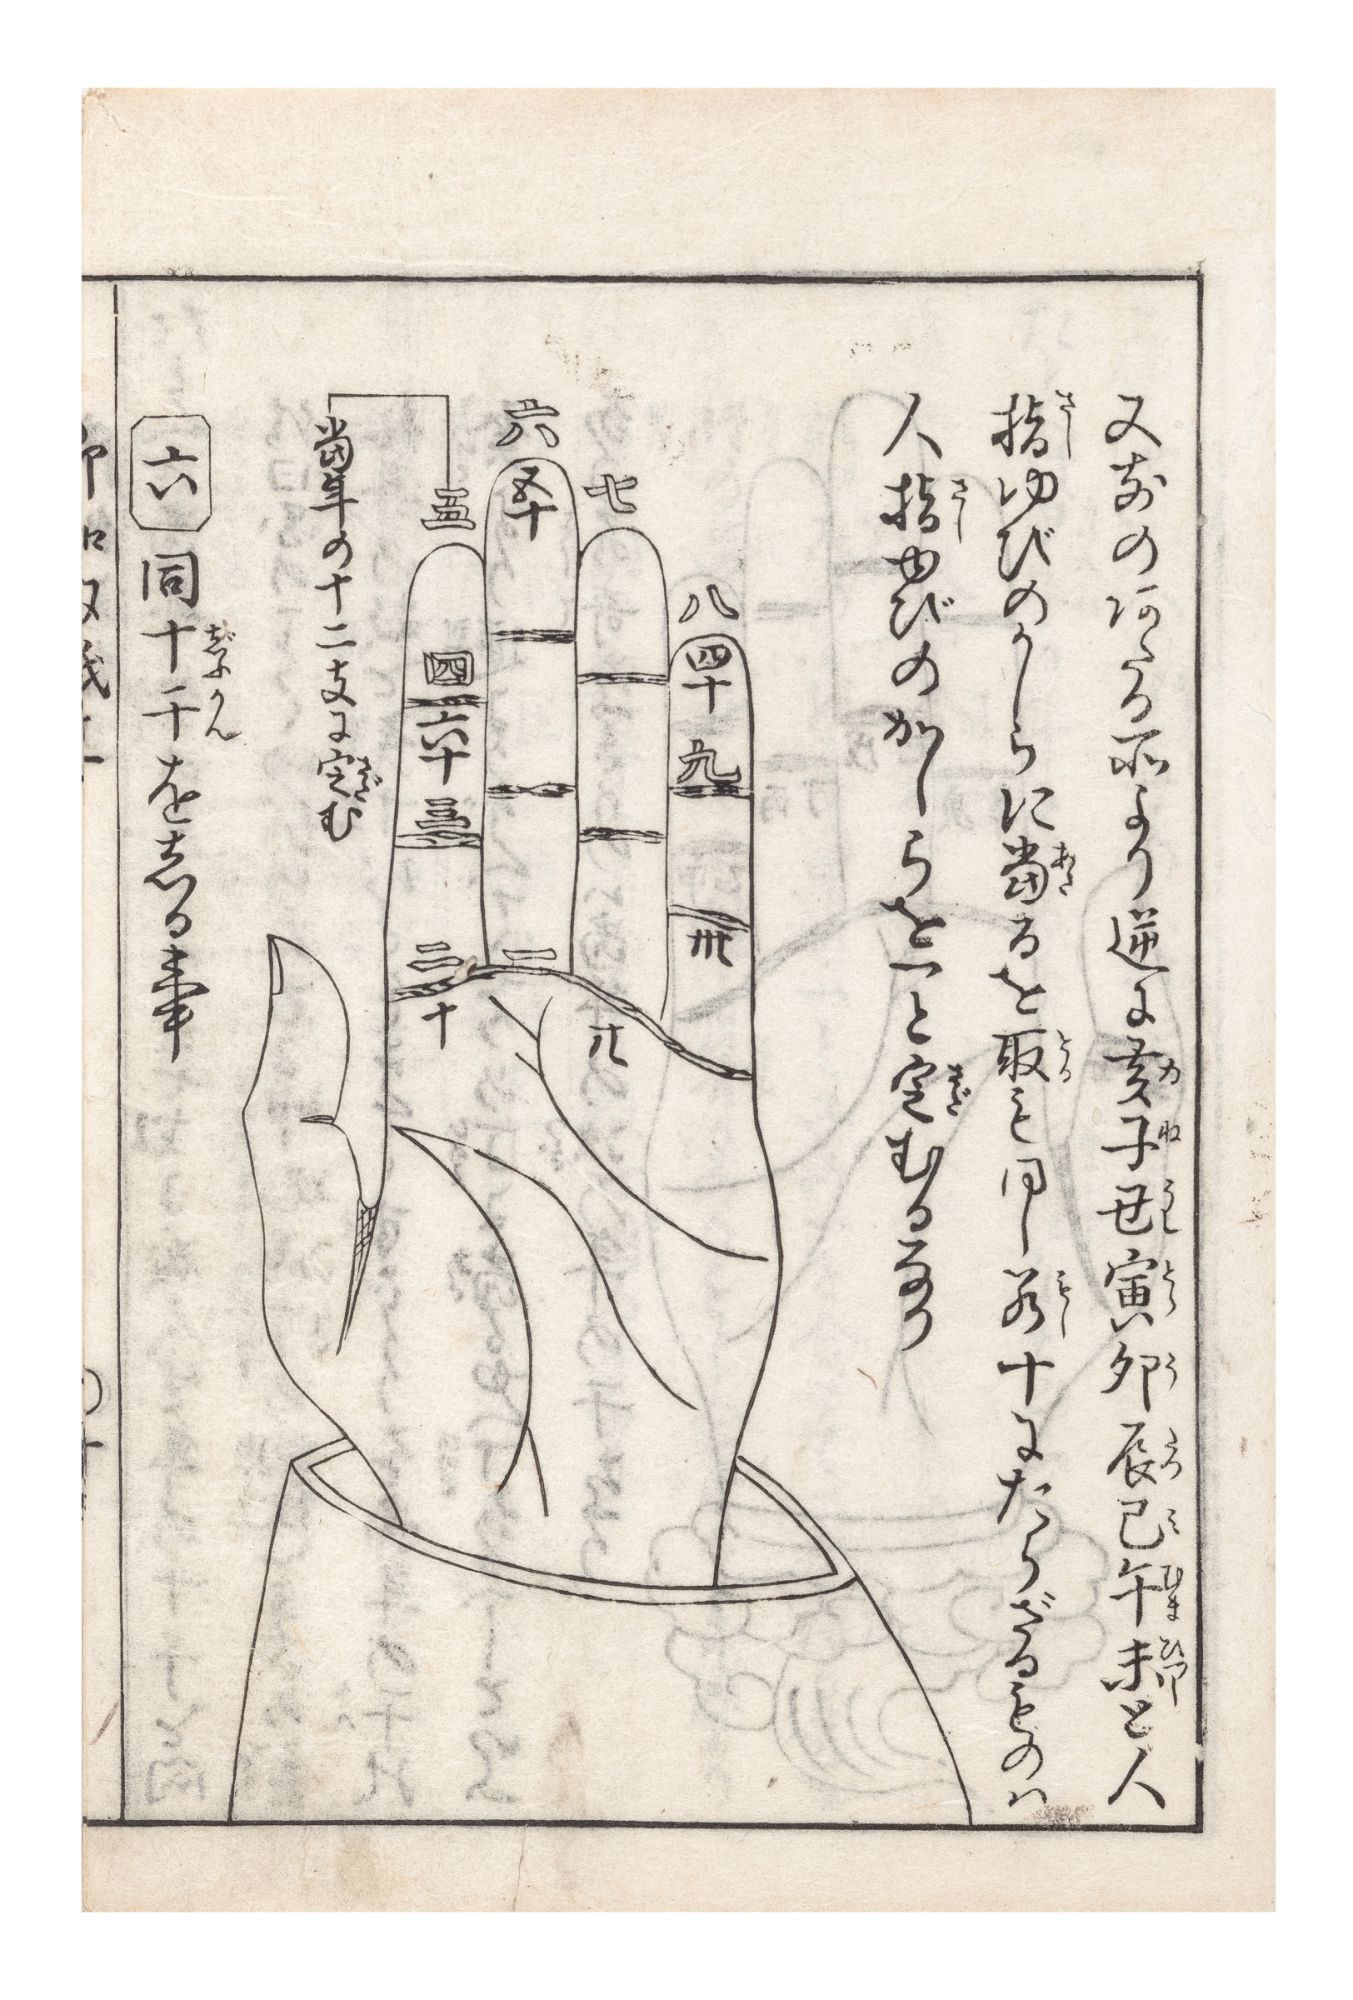 又前のあたる所より逆に亥子丑寅卯辰巳午未と人
指ゆびのかしらに當るを取也但し若十にたらざるものハ
人指ゆびのかしらを一と定むるなり
八
四十
九
卅
七
廿
六
五十
一
五
四
六十
三
二
十
當年の十二支に定む
六 同十干を志る事